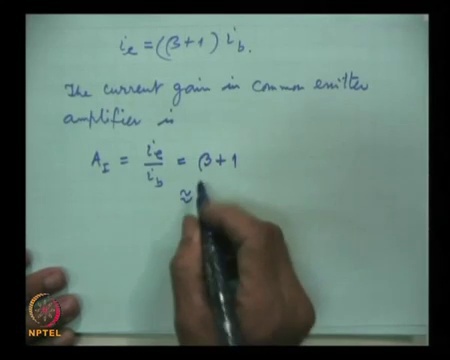 i_e = (β+1) i_b.
The current gain in common emitter
amplifier is
A_I = i_e / i_b = β + 1
≈
NPTEL